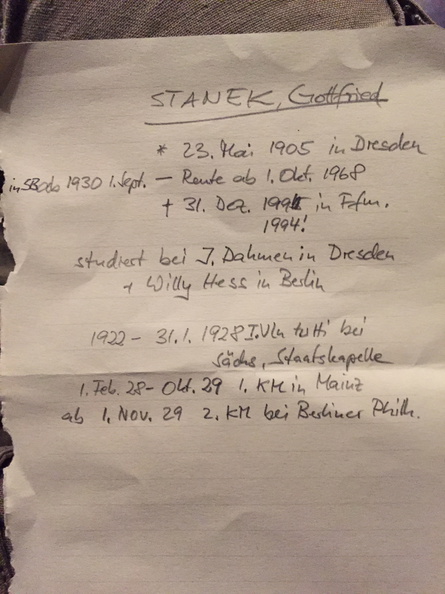 STANEK, Gottfried
* 23. Mai 1905 in Dresden
in SB ab 1930 1. Sept. — Rente ab 1. Okt. 1968
† 31. Dez. in Ffm.
1994!
studiert bei J. Dahmen in Dresden
+ Willy Hess in Berlin
1922 – 31.1.1928 I. Vln tutti bei
Sächs. Staatskapelle
1. Feb. 28 – Okt. 29 1. KM in Mainz
ab 1. Nov. 29 2. KM bei Berliner Philh.